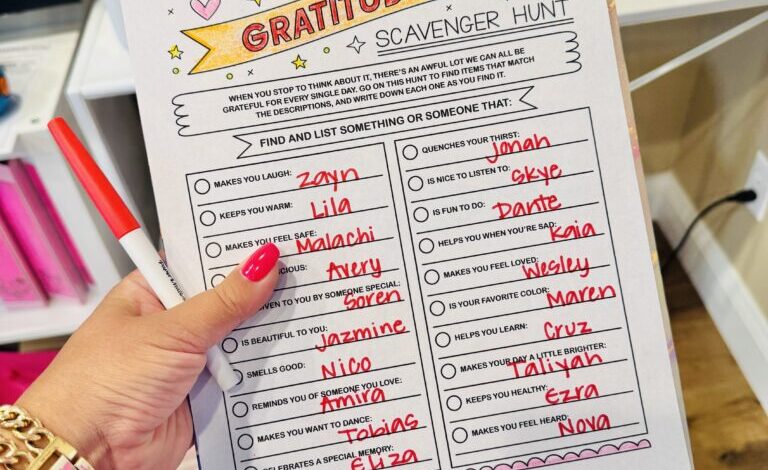 GRATITUDE
SCAVENGER HUNT
WHEN YOU STOP TO THINK ABOUT IT, THERE'S AN AWFUL LOT WE CAN ALL BE
GRATEFUL FOR EVERY SINGLE DAY. GO ON THIS HUNT TO FIND ITEMS THAT MATCH
THE DESCRIPTIONS, AND WRITE DOWN EACH ONE AS YOU FIND IT.
FIND AND LIST SOMETHING OR SOMEONE THAT:
MAKES YOU LAUGH: Zayn
KEEPS YOU WARM: Lila
MAKES YOU FEEL SAFE: Malachi
CIOUS: Avery
IVEN TO YOU BY SOMEONE SPECIAL: Soren
IS BEAUTIFUL TO YOU: Jazmine
SMELLS GOOD: Nico
REMINDS YOU OF SOMEONE YOU LOVE: Amira
MAKES YOU WANT TO DANCE: Tobias
CELEBRATES A SPECIAL MEMORY: Eliza
QUENCHES YOUR THIRST: Jonah
IS NICE TO LISTEN TO: Skye
IS FUN TO DO: Dante
HELPS YOU WHEN YOU'RE SAD: Kaia
MAKES YOU FEEL LOVED: Wesley
IS YOUR FAVORITE COLOR: Maren
HELPS YOU LEARN: Cruz
MAKES YOUR DAY A LITTLE BRIGHTER: Taliyah
KEEPS YOU HEALTHY: Ezra
MAKES YOU FEEL HEARD: Nova